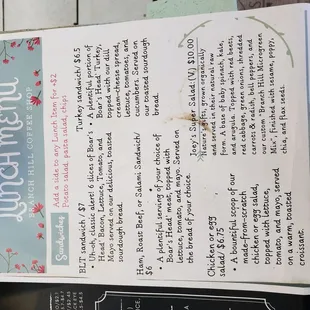 LUNCH MENU
BRANCH HILL COFFEE SHOP
Add a side to any Lunch Item for +$2
Potato salad, pasta salad, chips
Sandwiches
BLT Sandwich / $7
• Uh-oh, classic alert! 6 slices of Boar's
Head Bacon, Lettuce, Tomato, and
Mayo served on our delicious, toasted
sourdough bread.
Ham, Roast Beef, or Salami Sandwich/
$6
• A plentiful serving of your choice of
Boar's Head meat, topped with
lettuce, tomato, and mayo. Served on
the bread of your choice.
Chicken or egg
salad/ $6.75
• A bountiful scoop of our
made-from-scratch
chicken or egg salad,
topped with lettuce,
tomato, and mayo, served
on a warm, toasted
croissant.
Turkey sandwich/ $6.5
• A plentiful portion of
Boar's Head Turkey,
topped with our dill
cream-cheese spread,
lettuce, tomatoes, and
cucumbers. Served on
our toasted sourdough
bread.
Joey's Super Salad:(V) $10.00
Nature's gifts, grown organically
and served in their natural raw
form. A base of baby spinach, kale,
and arugula. Topped with red beets,
red cabbage, green onions, shredded
carrots & radish, bell peppers, and
our custom "Branch Hill Microgreen
Mix", finished with sesame, poppy,
chia, and flax seeds.